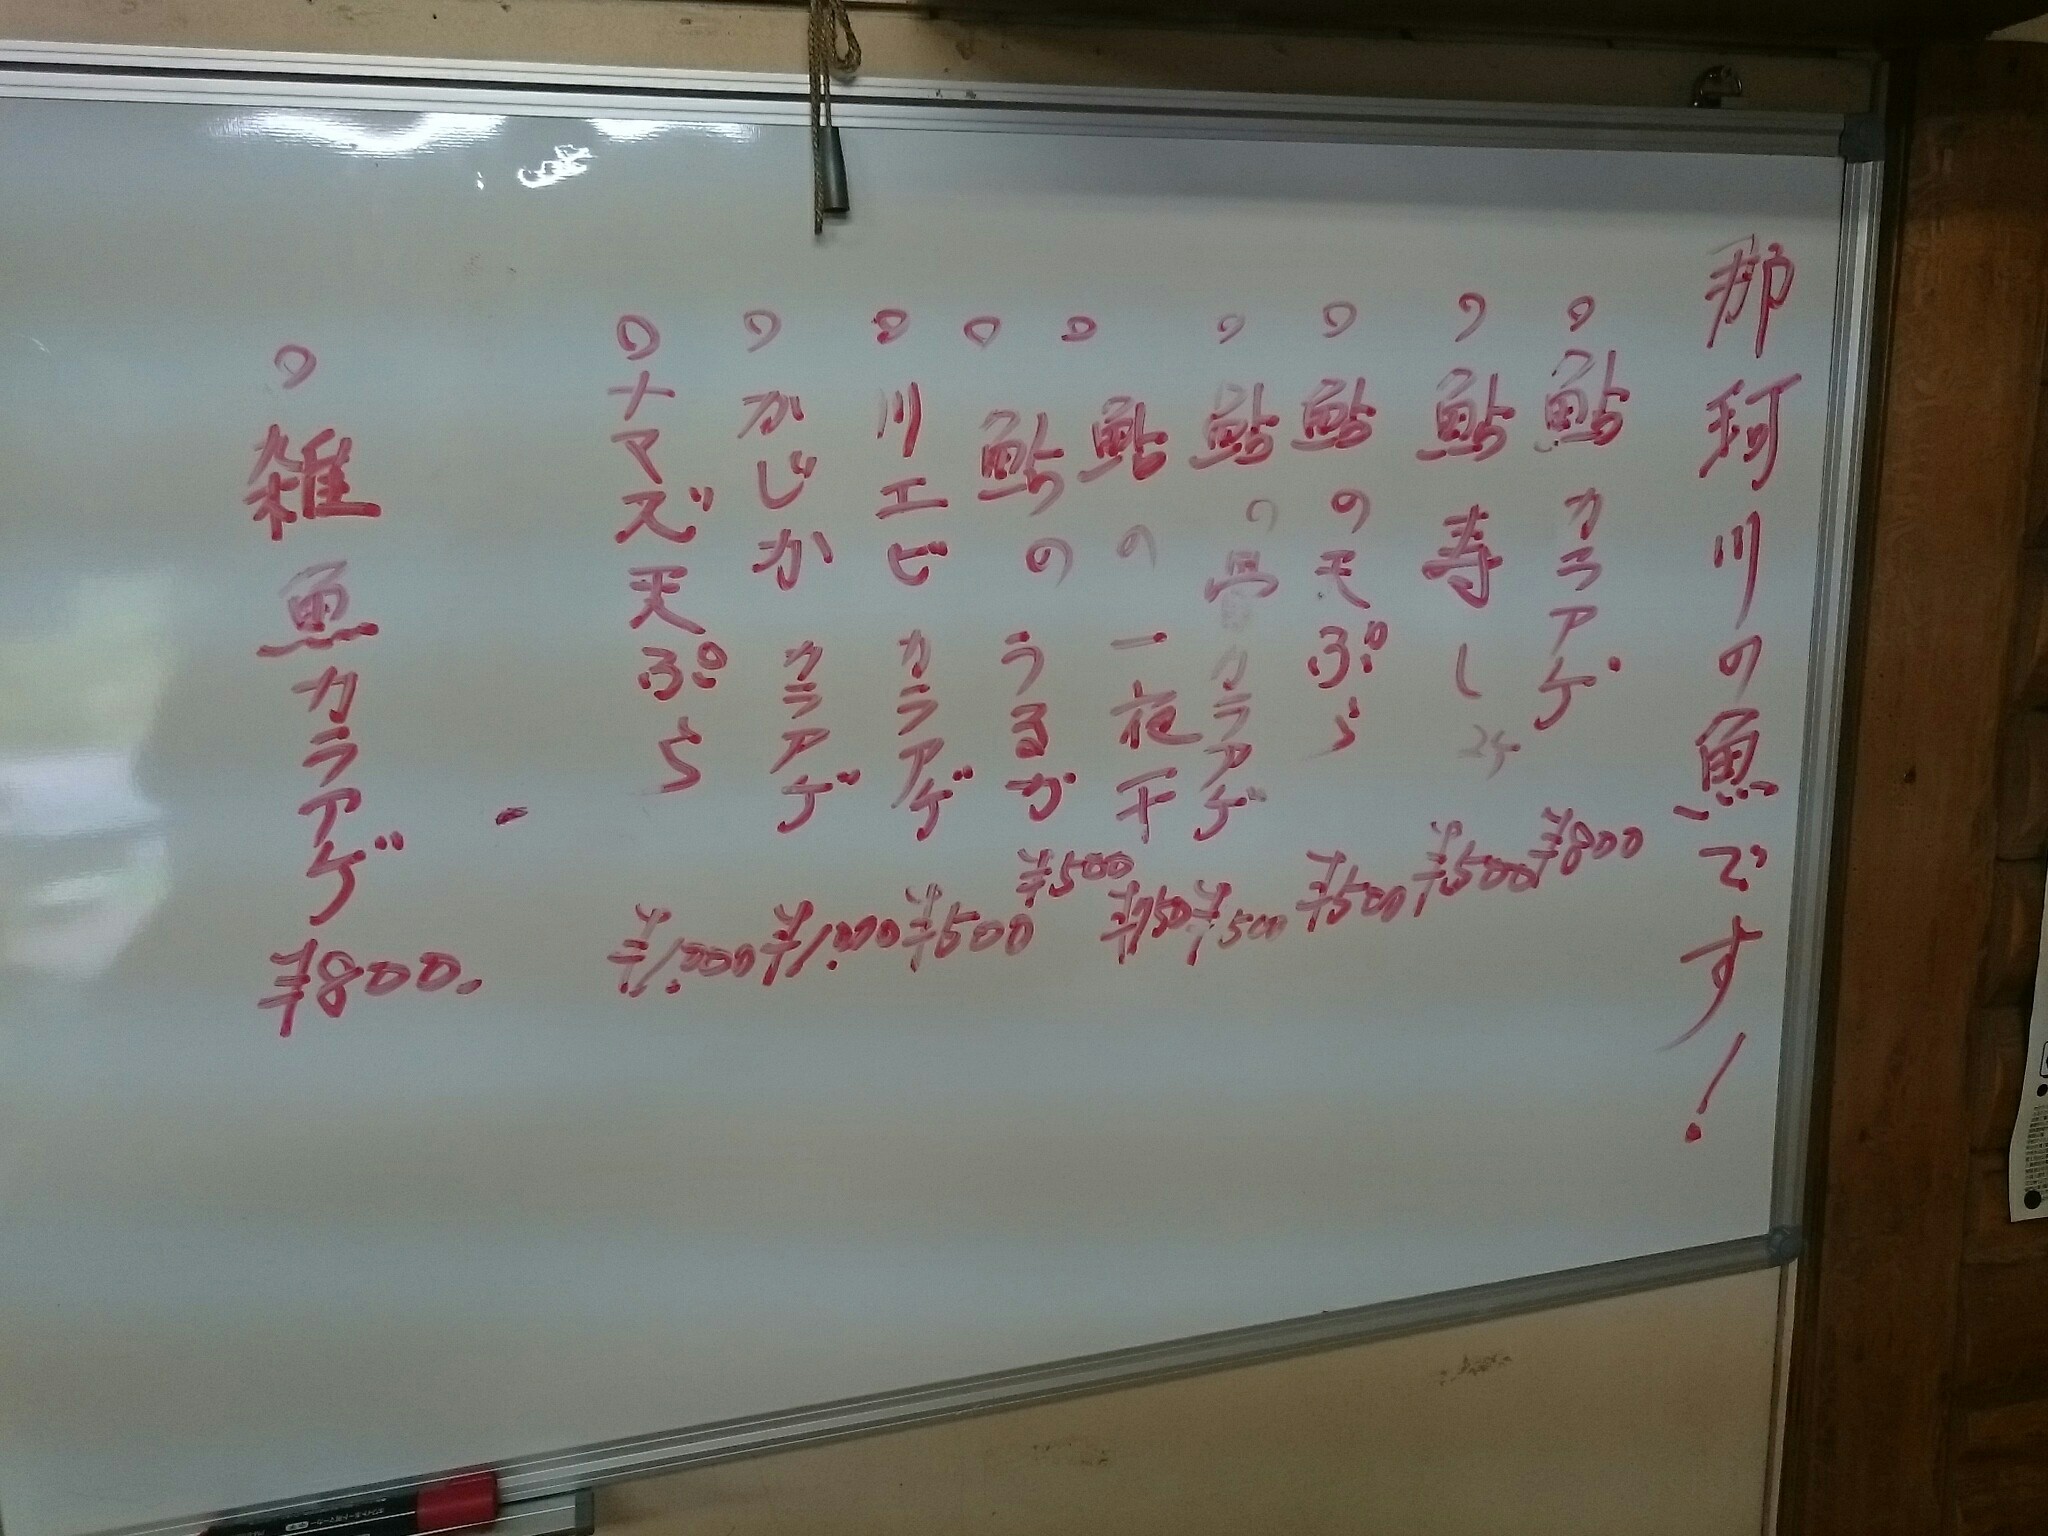 那珂川の魚です!
○鮎カラアゲ ¥800
○鮎寿し 2ケ ¥500
○鮎の天ぷら ¥500
○鮎の骨カラアゲ ¥500
○鮎の一夜干 ¥750
○鮎のうるか ¥500
○川エビカラアゲ ¥500
○かじかカラアゲ ¥1,000
○ナマズ天ぷら ¥1,000
○雑魚カラアゲ ¥800.